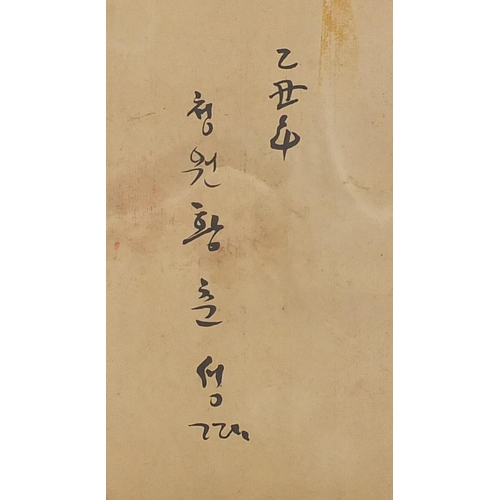 乙丑年
청원황춘성